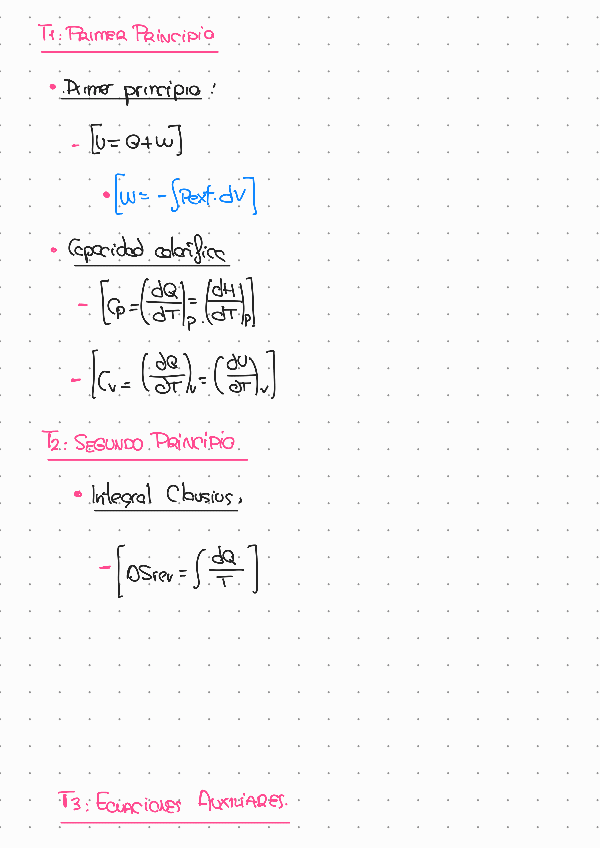 T1: PRIMER PRINCIPIO
• Primer principio:
- [U = Q + W]
• [W = - ∫ Pext. dV]
• Capacidad calorífica
- [Cp = (dQ/dT)p = (dH/dT)p]
- [Cv = (dQ/dT)v = (dU/dT)v]
T2: SEGUNDO PRINCIPIO.
• Integral Clausius,
- [DSrev = ∫ dQ/T]
T3: ECUACIONES AUXILIARES.